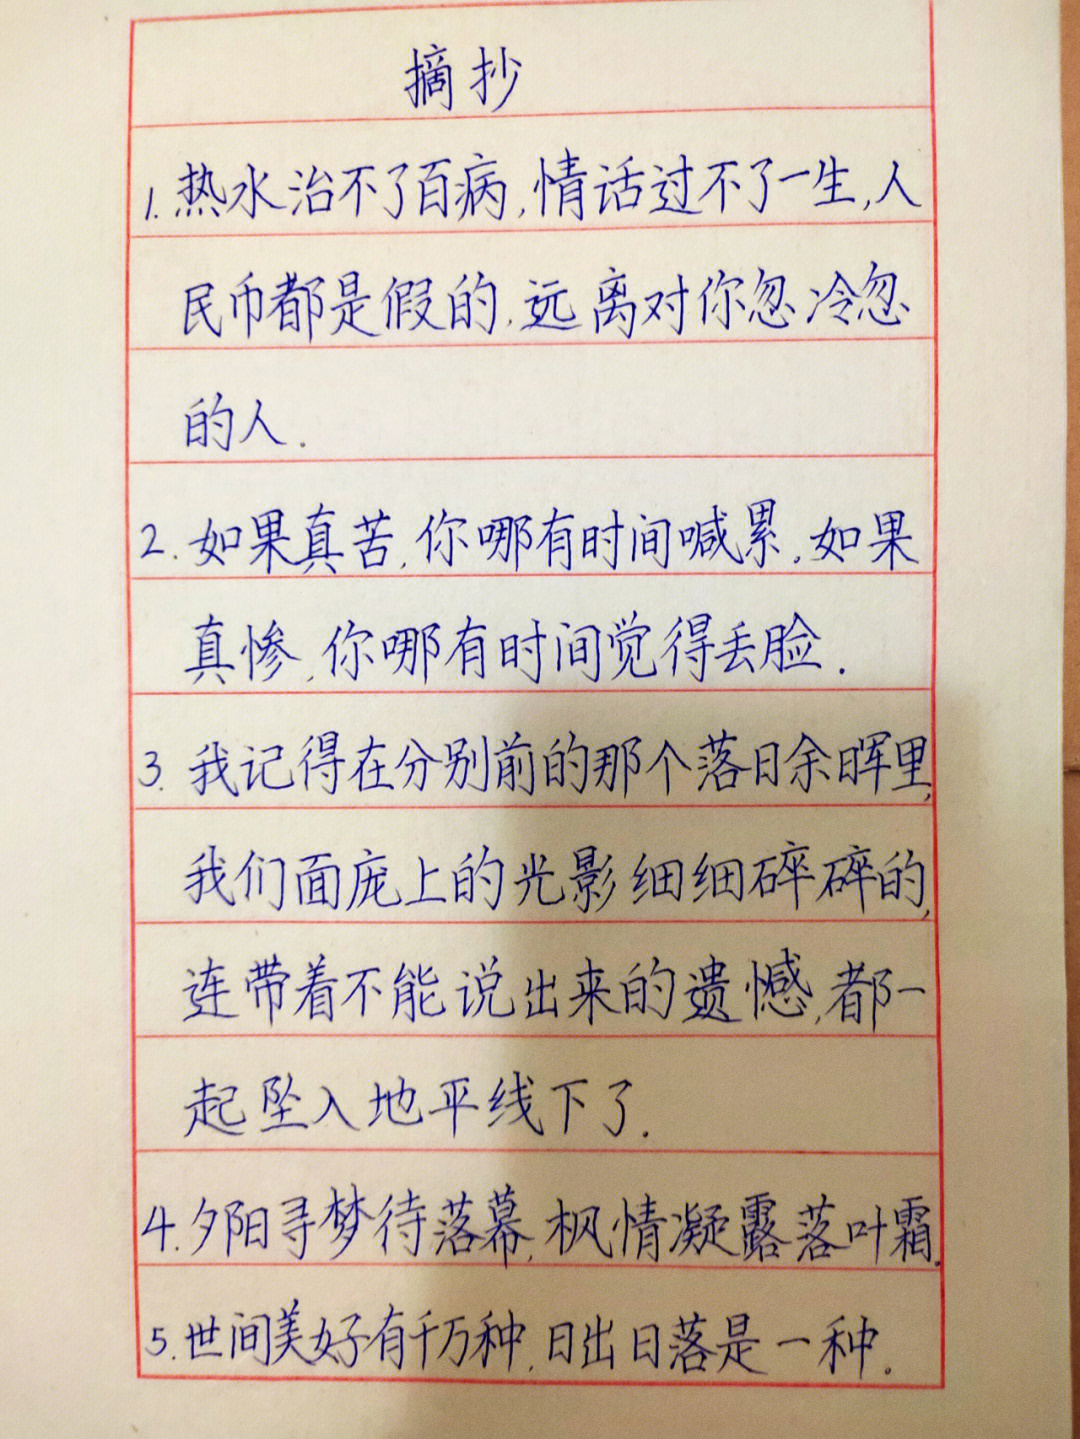 摘抄
1.热水治不了百病,情话过不了一生,人
民币都是假的.远离对你忽冷忽
的人.
2.如果真苦,你哪有时间喊累.如果
真惨,你哪有时间觉得丢脸.
3.我记得在分别前的那个落日余晖里,
我们面庞上的光影细细碎碎的,
连带着不能说出来的遗憾,都一
起坠入地平线下了.
4.夕阳寻梦待落幕,枫情凝露落叶霜.
5.世间美好有千万种,日出日落是一种.